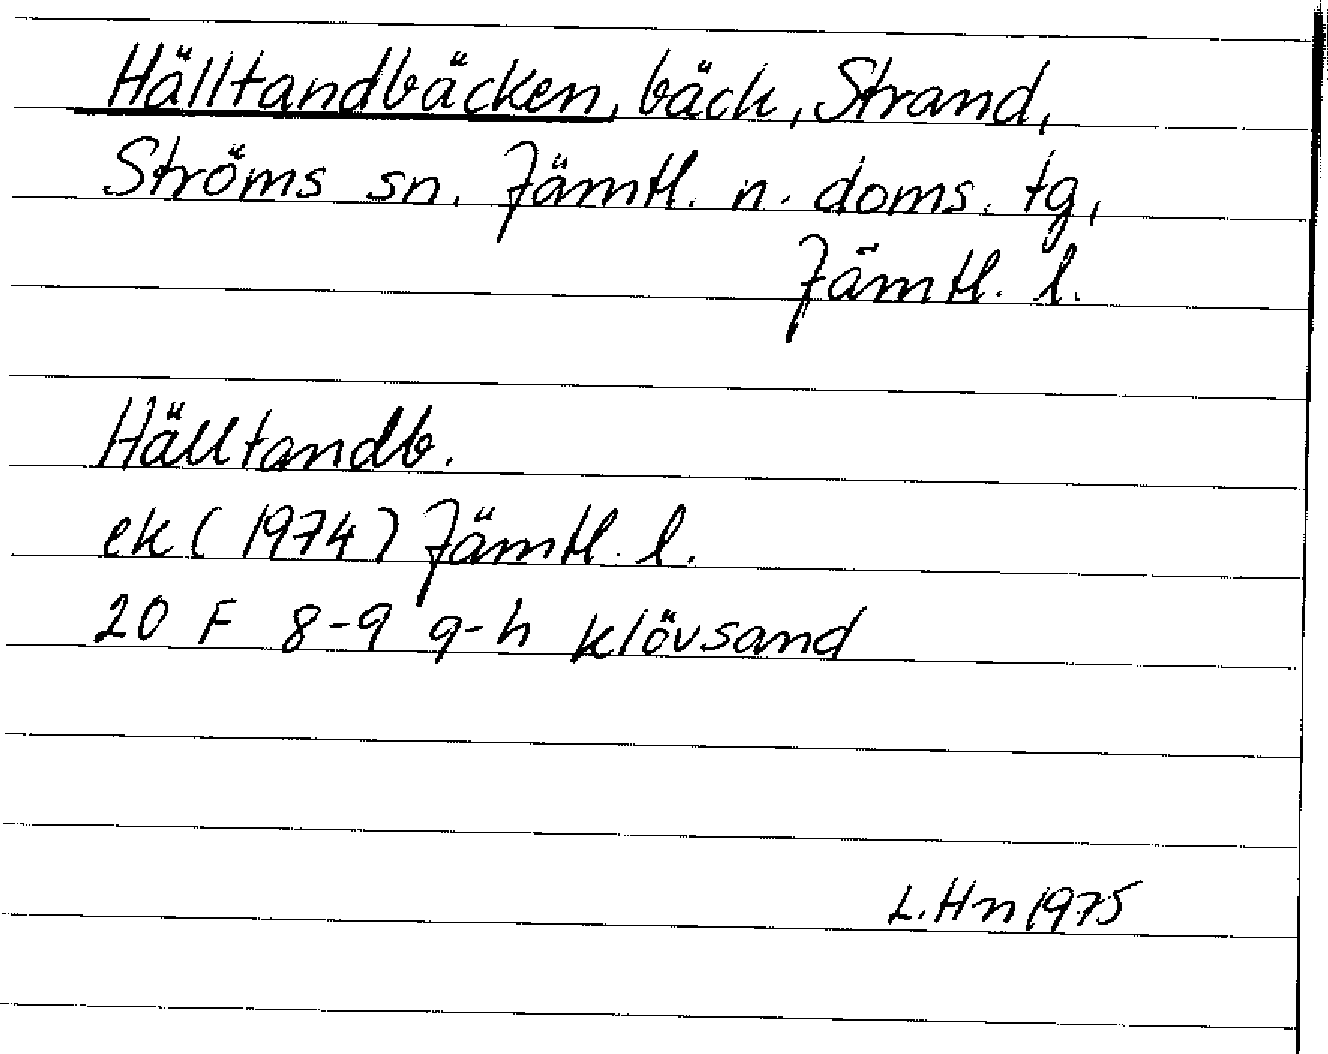 Hälltandbäcken, bäck, Strand,
Ströms sn. Jämtl. n. doms. tg,
Jämtl. l.
Hälltandb.
ek (1974) Jämtl. l.
20 F 8-9 g-h Klövsand
L.Hn 1975